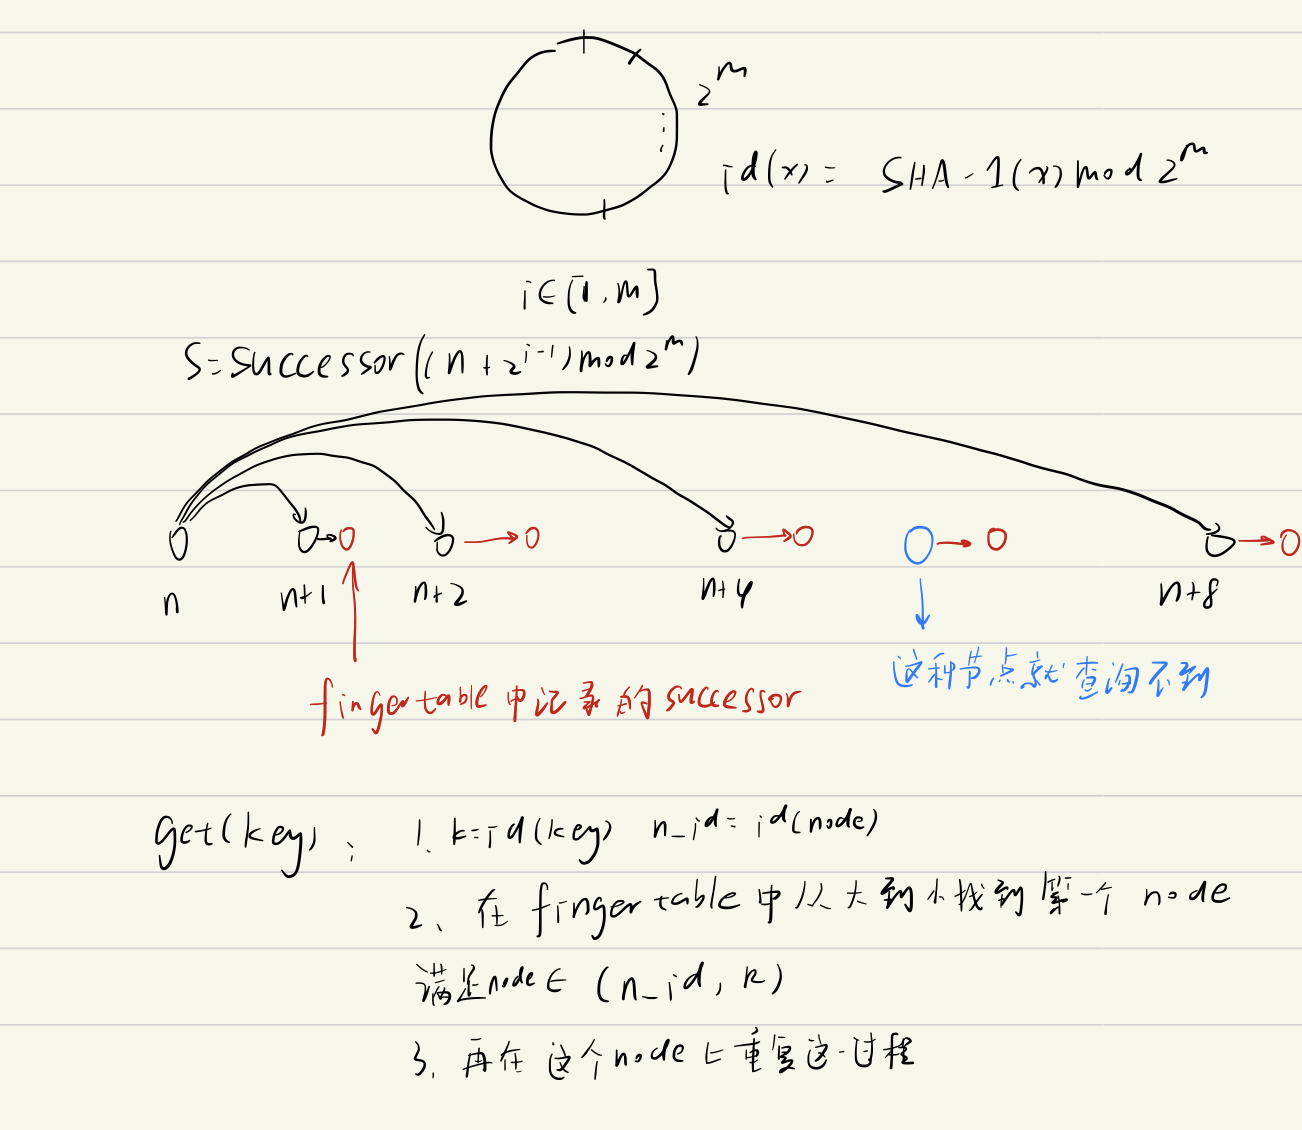 2^m
id(x) = SHA-1(x) mod 2^m
i∈[1,m]
S=Successor((n+2^{i-1}) mod 2^m)
n n+1 n+2 n+4 n+8
这种节点就查询不到
fingertable中记录的successor
get(key): 1. k=id(key) n_id=id(node)
2、在fingertable中从大到小找到第一个node
满足node∈(n_id, k)
3. 再在这个node上重复这一过程